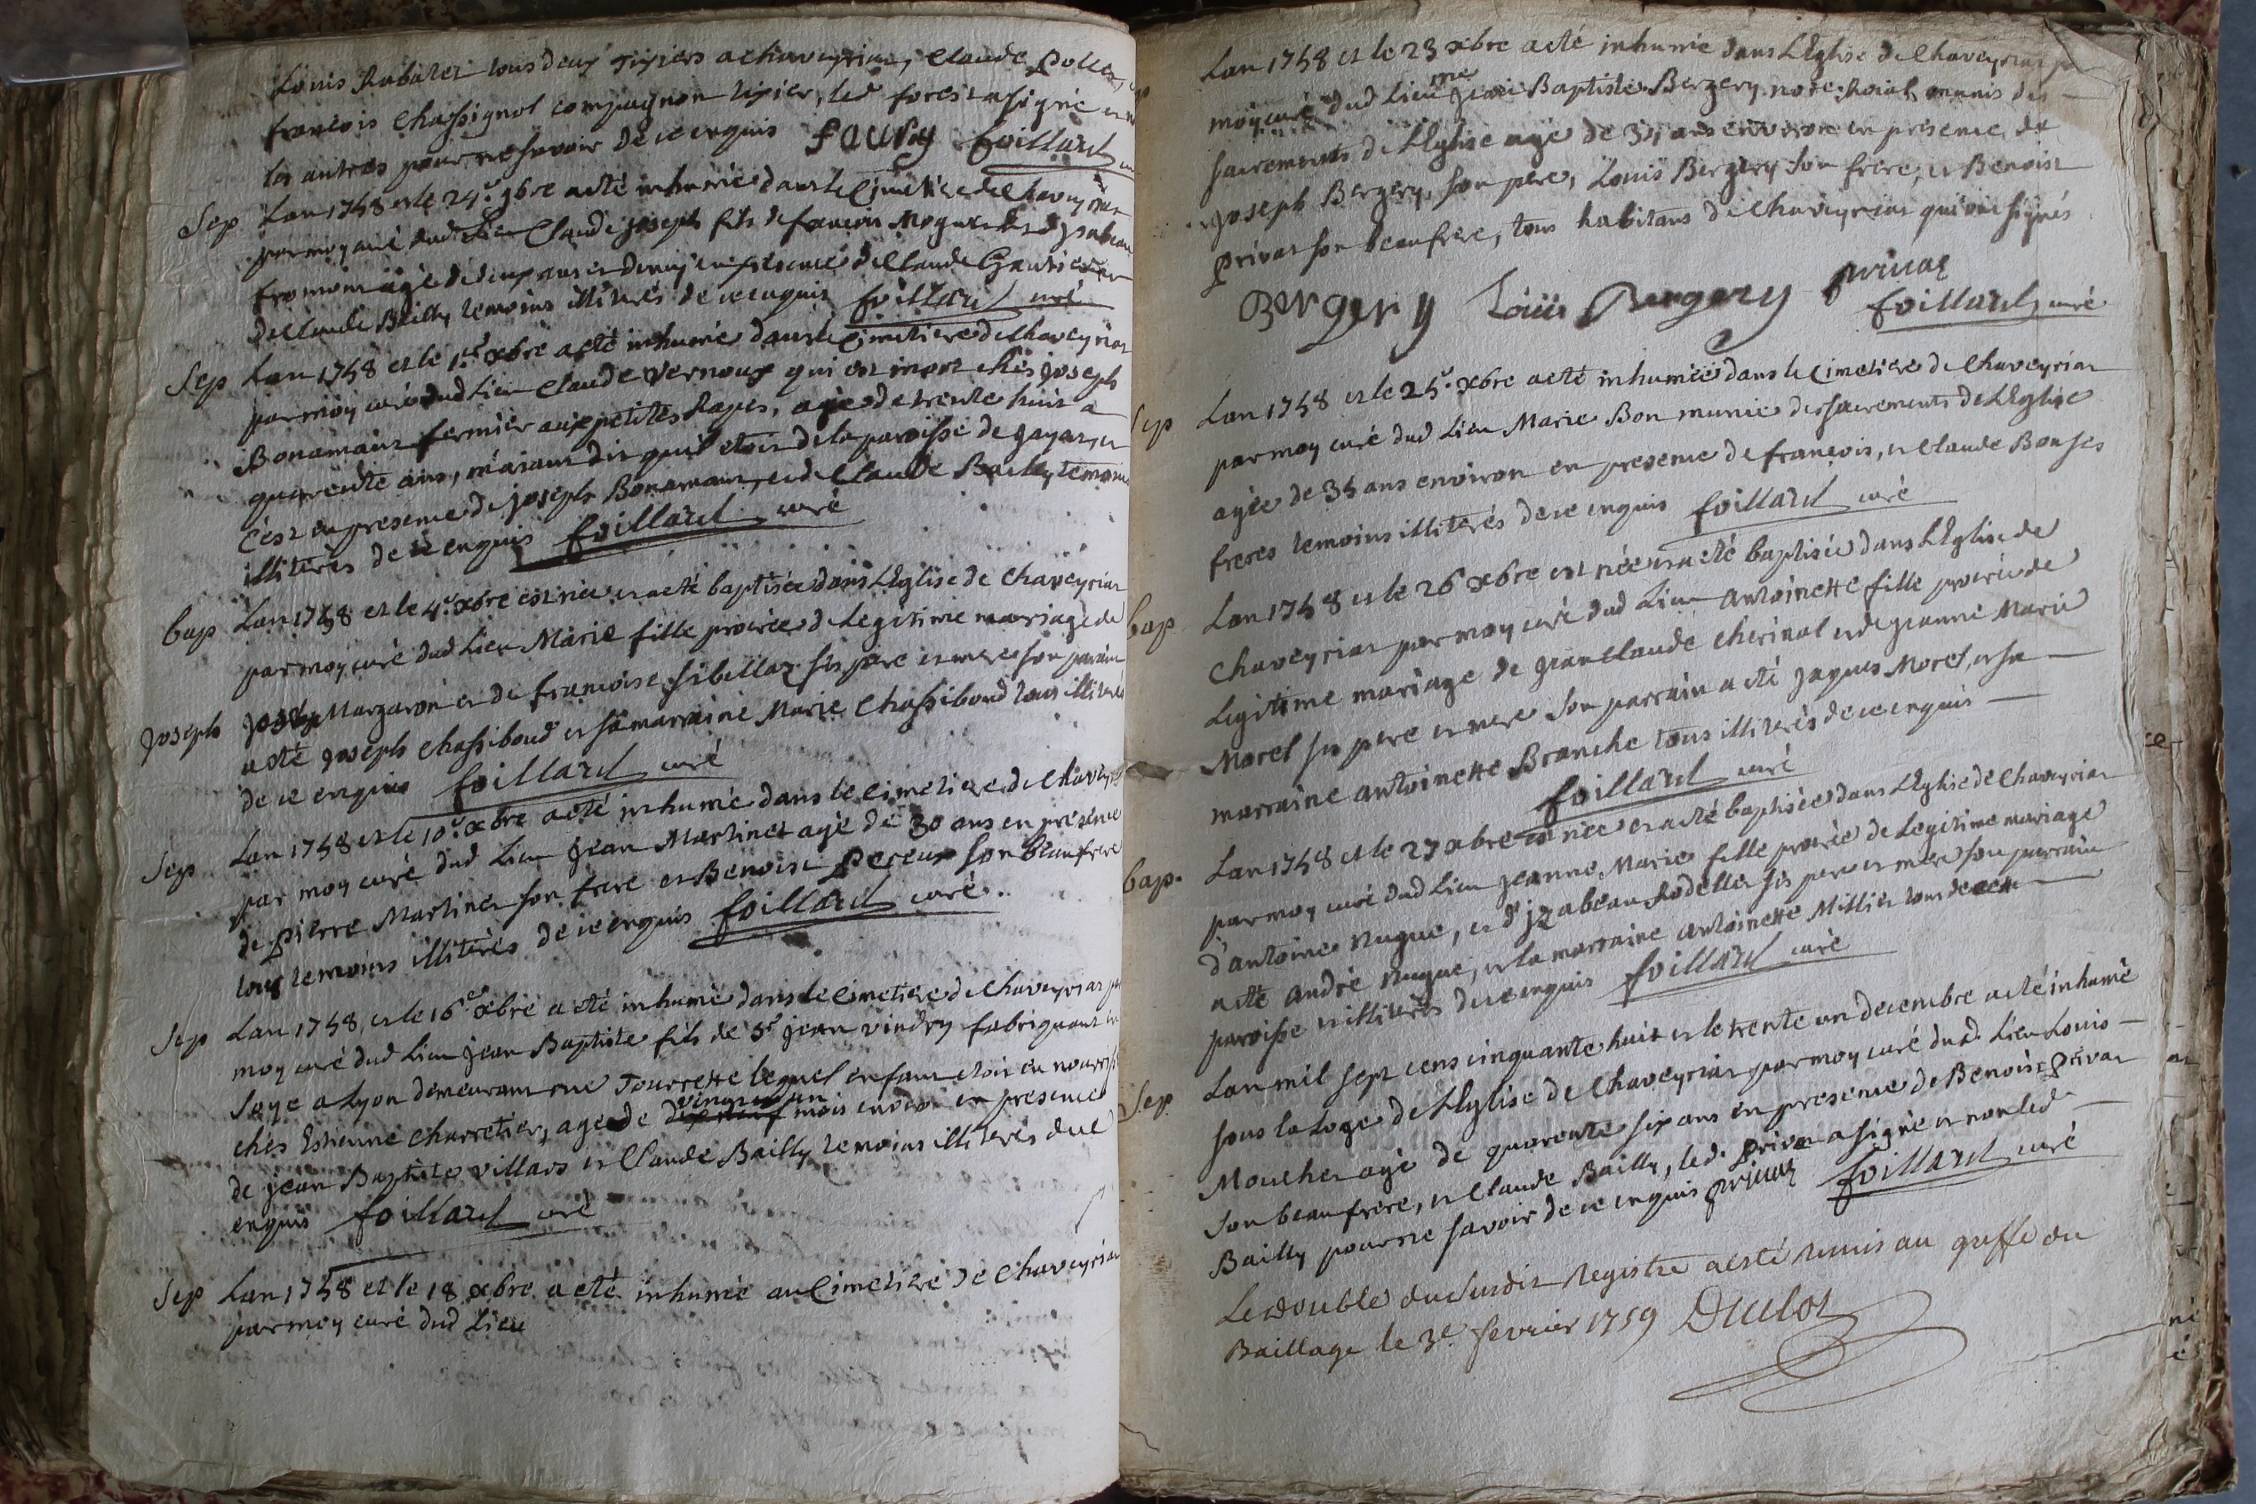 Louis Rabatet tous deux tixiers a chaveyriat, Claude Pollet,
francois Chassignol compagnon tixier, led forest a signé et non
les autres pour ne savoir de ce enquis foillard
Sep Lan 1758 et le 24e 9bre a eté inhumé dans le Cimetiere de Chaveyriat
par moy curé dud Lieu Claude joseph fils de francois
fromont agé de deux ans et demy en presence de Claude Gautier et
de Claude Bailly temoins illiterés de ce enquis foillard curé
Sep Lan 1758 et le 1er xbre a eté inhumé dans le Cimetiere de Chaveyriat
par moy curé dud Lieu Claude Vernoux qui est mort chés joseph
Bonamant fermier aux petites Rapes, agé de trente huit a
quarente ans, m'aiant dit quil etoit de la paroisse de jayat, et
c'est en presence de joseph Bonamant, et de Claude Bailly temoins
illiterés de ce enquis foillard curé
bap Lan 1758 et le 4e xbre est née et a eté baptisée dans L'Eglise de Chaveyriat
par moy curé dud Lieu Marie fille procréée de Legitime mariage de
joseph Margaron et de francoise Sibellas ses pere et mere son parain
a eté joseph Chassiboud et sa marraine Marie Chassiboud tous illiterés
de ce enquis foillard curé
Sep Lan 1758 et le 10e xbre a eté inhumé dans le Cimetiere de Chaveyriat
par moy curé dud Lieu jean Martinet agé de 30 ans en presence
de pierre Martinet son frere et Benoist Peceux son beaufrere
tous temoins illiterés de ce enquis foillard curé
Sep Lan 1758, et le 16e xbre a eté inhumé dans le Cimetiere de Chaveyriat par
moy curé dud Lieu jean Baptiste fils de Sr jean vindry fabriquant en
soye a Lyon demeurant rue Tourrette lequel enfant etoit en nourrice
vingt et un
chés Estienne Charretier, agé de dix neuf mois environ en presence
de jean Baptiste Villars et Claude Bailly temoins illiterés de ce
enquis foillard curé
Sep Lan 1758 et le 18 xbre a eté inhumé au Cimetiere de Chaveyriat
par moy curé dud Lieu
Lan 1758 et le 23 xbre a eté inhumé dans L'Eglise de Chaveyriat par
moy curé dud Lieu me jean Baptiste Bergery notre Roial, munis des
sacrements de L'Eglise agé de 34 ans environ en presence de
joseph Bergery, son pere, Louis Bergery son frere, et Benoist
privat son beaufrere, tous habitans de Chaveyriat qui ont signés
Bergery Loüis Bergery privat
foillard curé
Sep Lan 1758 et le 25e xbre a eté inhumée dans le Cimetiere de Chaveyriat
par moy curé dud Lieu Marie Bon munie des sacrements de L'Eglise
agée de 35 ans environ en presence de francois, et Claude Bon ses
freres temoins illiterés de ce enquis foillard curé
bap Lan 1758 et le 26 xbre est née et a eté baptisée dans L'Eglise de
Chaveyriat par moy curé dud Lieu antoinette fille procréée de
Legitime mariage de jean Claude Cherinal et de jeanne Marie
Morel ses pere et mere son parrain a eté jaques Morel, et sa
marraine antoinette Branche tous illiterés de ce enquis
foillard curé
bap. Lan 1758 et le 27 xbre est née et a eté baptisée dans L'Eglise de Chaveyriat
par moy curé dud Lieu jeanne Marie fille procréée de Legitime mariage
d'antoine nugue, et d'jzabeau Rodellet ses pere et mere son parrain
a eté andré nugue, et la marraine antoinette Millier tous de cette
paroisse et illiterés de ce enquis foillard curé
Sep Lan mil sept cens cinquante huit et le trente un decembre a eté inhumé
sous la Loge de L'Eglise de Chaveyriat par moy curé dud. Lieu Louis
Mouchet agé de quarente six ans en presence de Benoist privat
son beaufrere, et Claude Bailly, led. privat a signé et non led
Bailly pour ne savoir de ce enquis privat foillard curé
Le double du susdit Registre a esté remis au greffe du
Baillage le 3e fevrier 1759